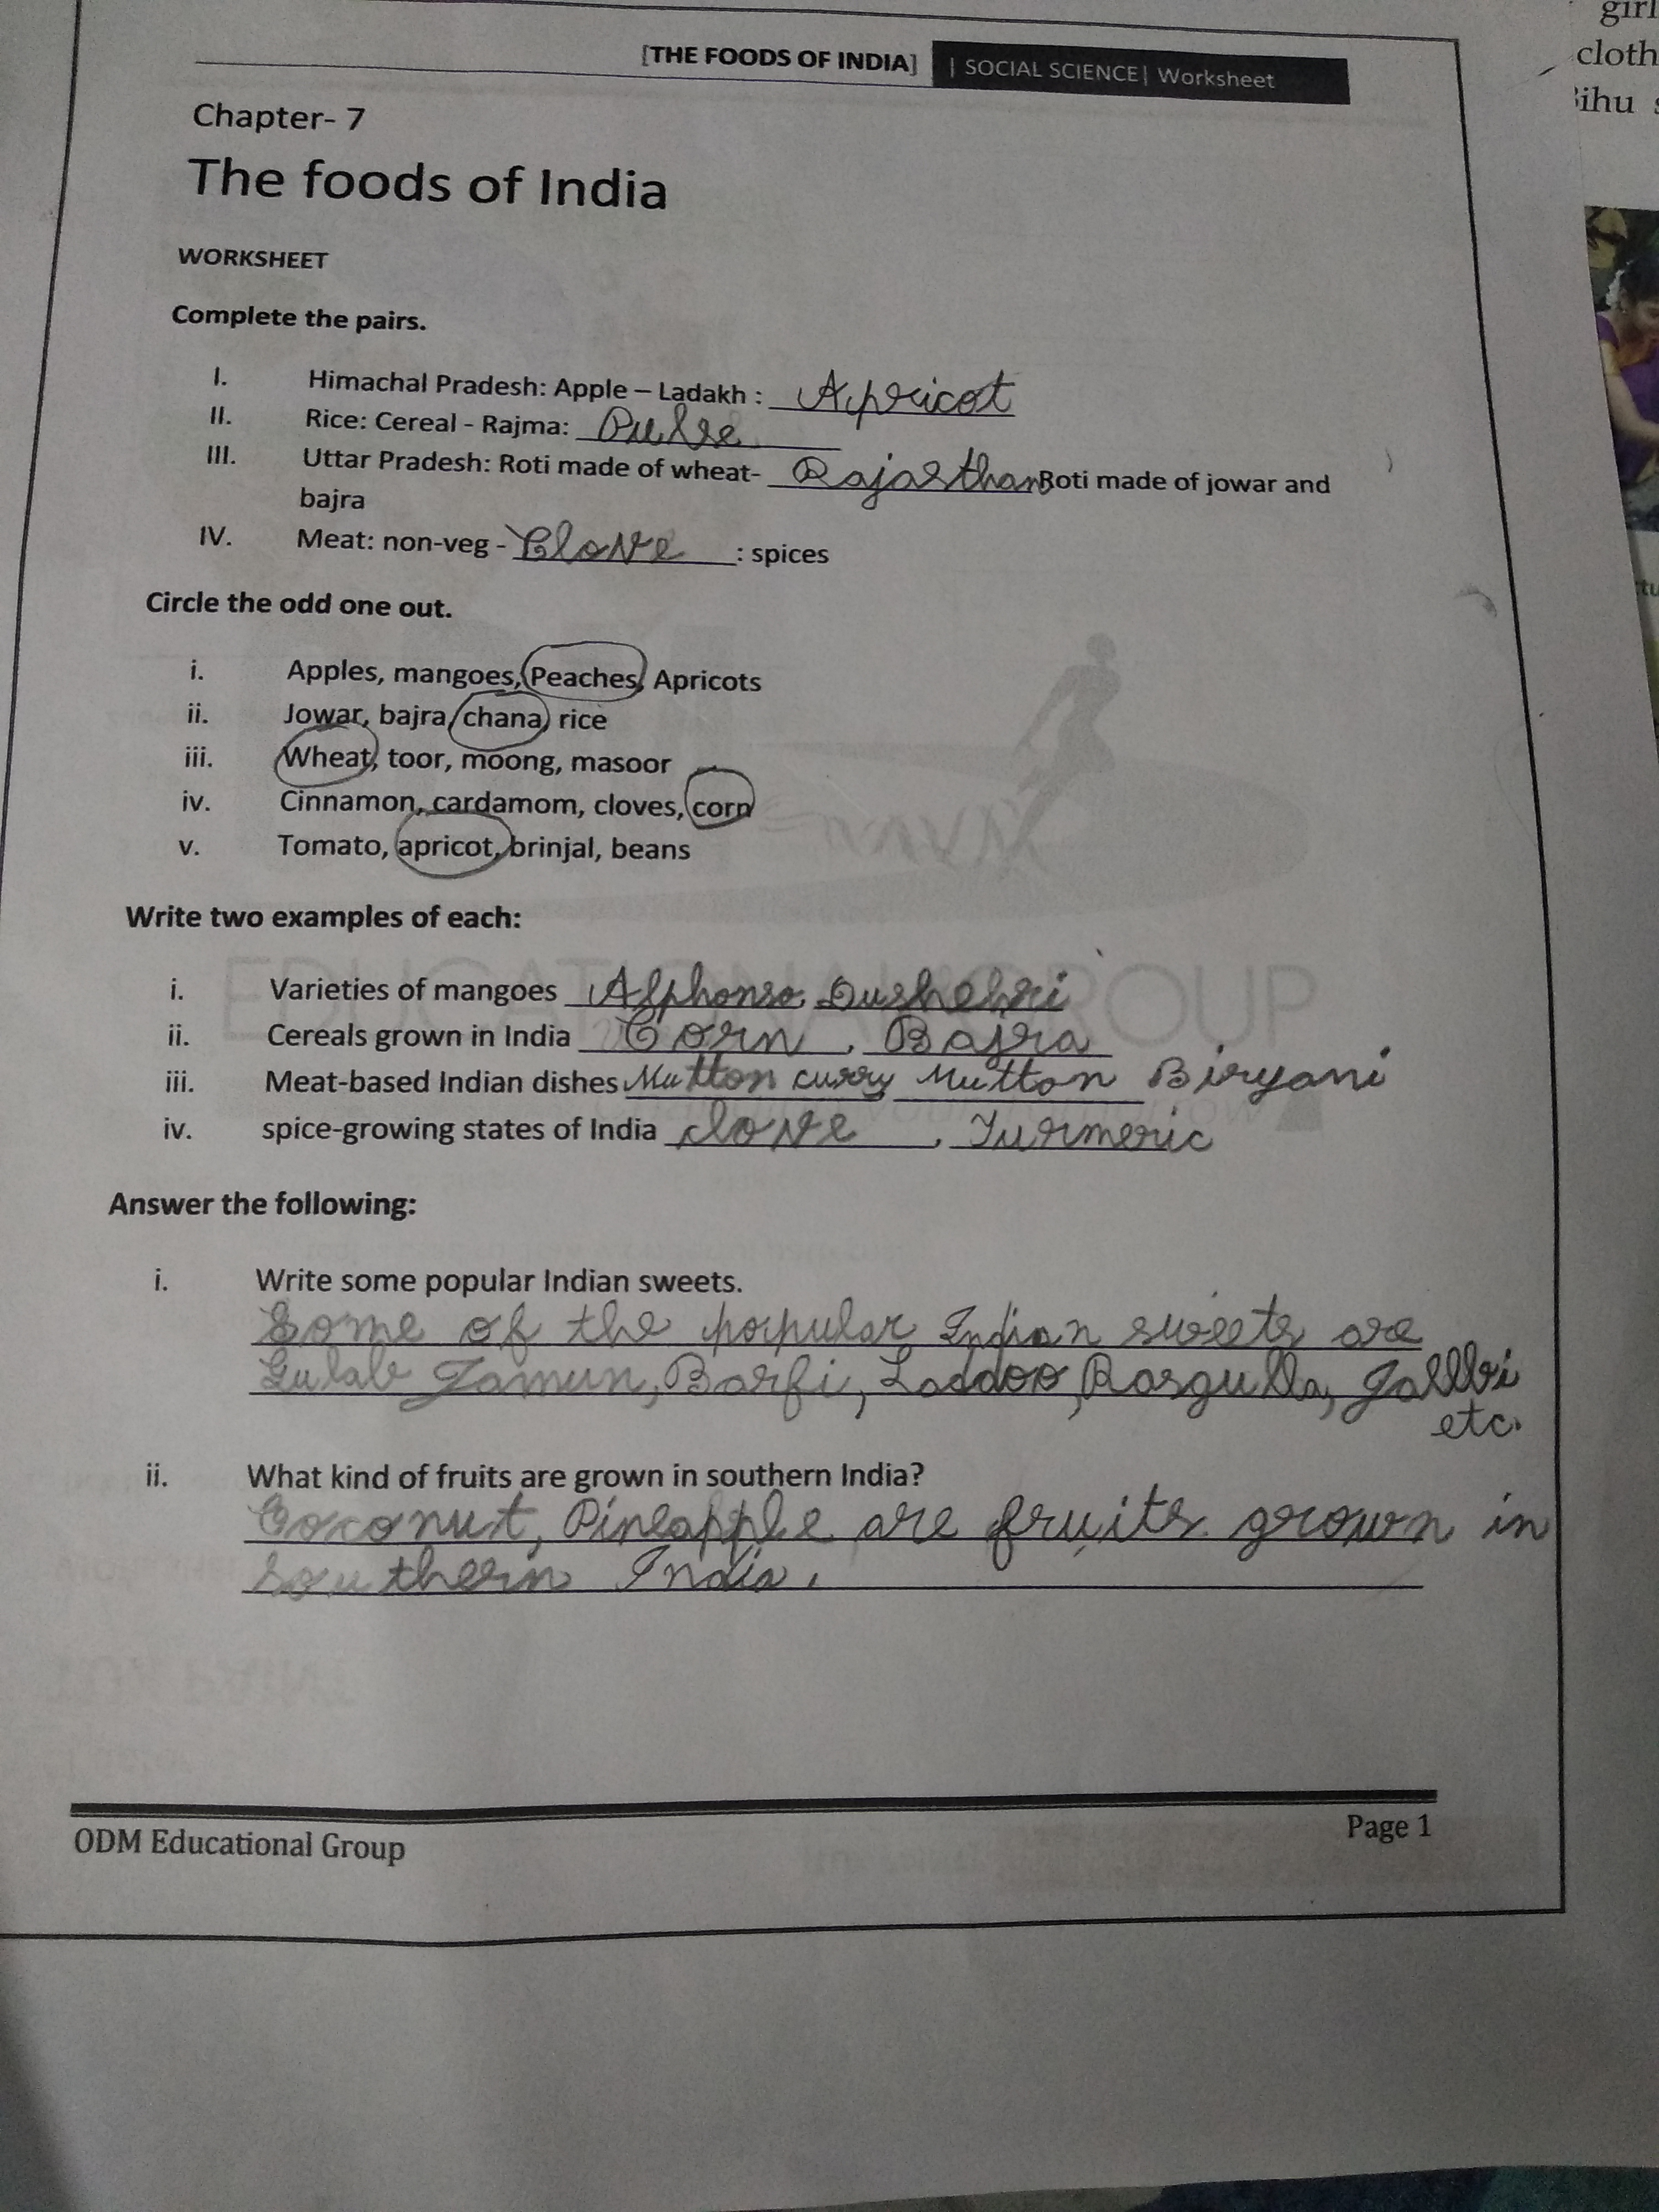 girl
cloth
Bihu s
[THE FOODS OF INDIA] | SOCIAL SCIENCE| Worksheet
Chapter- 7
The foods of India
WORKSHEET
Complete the pairs.
I. Himachal Pradesh: Apple – Ladakh : Apricot
II. Rice: Cereal - Rajma: Pulse
III. Uttar Pradesh: Roti made of wheat- Rajasthan Roti made of jowar and
bajra
IV. Meat: non-veg - Clove : spices
Circle the odd one out.
i. Apples, mangoes, Peaches, Apricots
ii. Jowar, bajra, chana, rice
iii. Wheat, toor, moong, masoor
iv. Cinnamon, cardamom, cloves, corn
v. Tomato, apricot, brinjal, beans
Write two examples of each:
i. Varieties of mangoes Alphonso, Dushehri
ii. Cereals grown in India Corn, Bajra
iii. Meat-based Indian dishes Mutton curry Mutton Biryani
iv. spice-growing states of India clove, Turmeric
Answer the following:
i. Write some popular Indian sweets.
Some of the popular Indian sweets are
Gulab Jamun, Barfi, Laddoo, Rasgulla, Jallbi
etc.
ii. What kind of fruits are grown in southern India?
Coconut, Pineapple are fruits grown in
Southern India.
ODM Educational Group Page 1